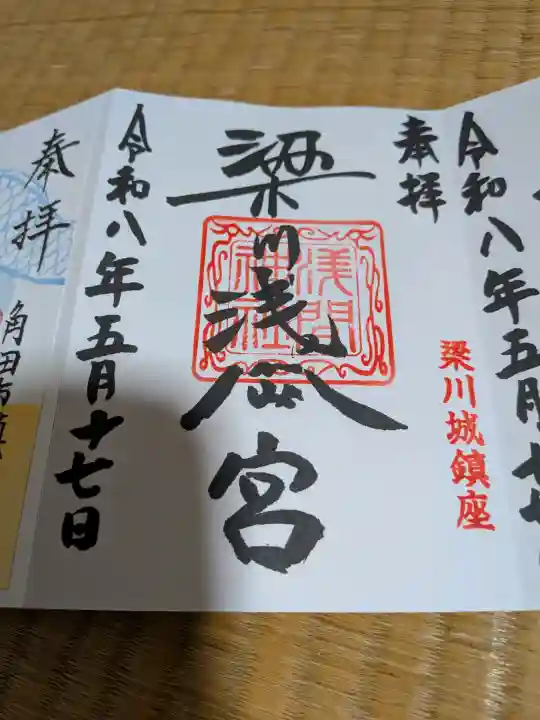 令和八年五月
奉拝
梁川城鎮座
浅間
神社
梁川浅間宮
令和八年五月十七日
奉拝
角田